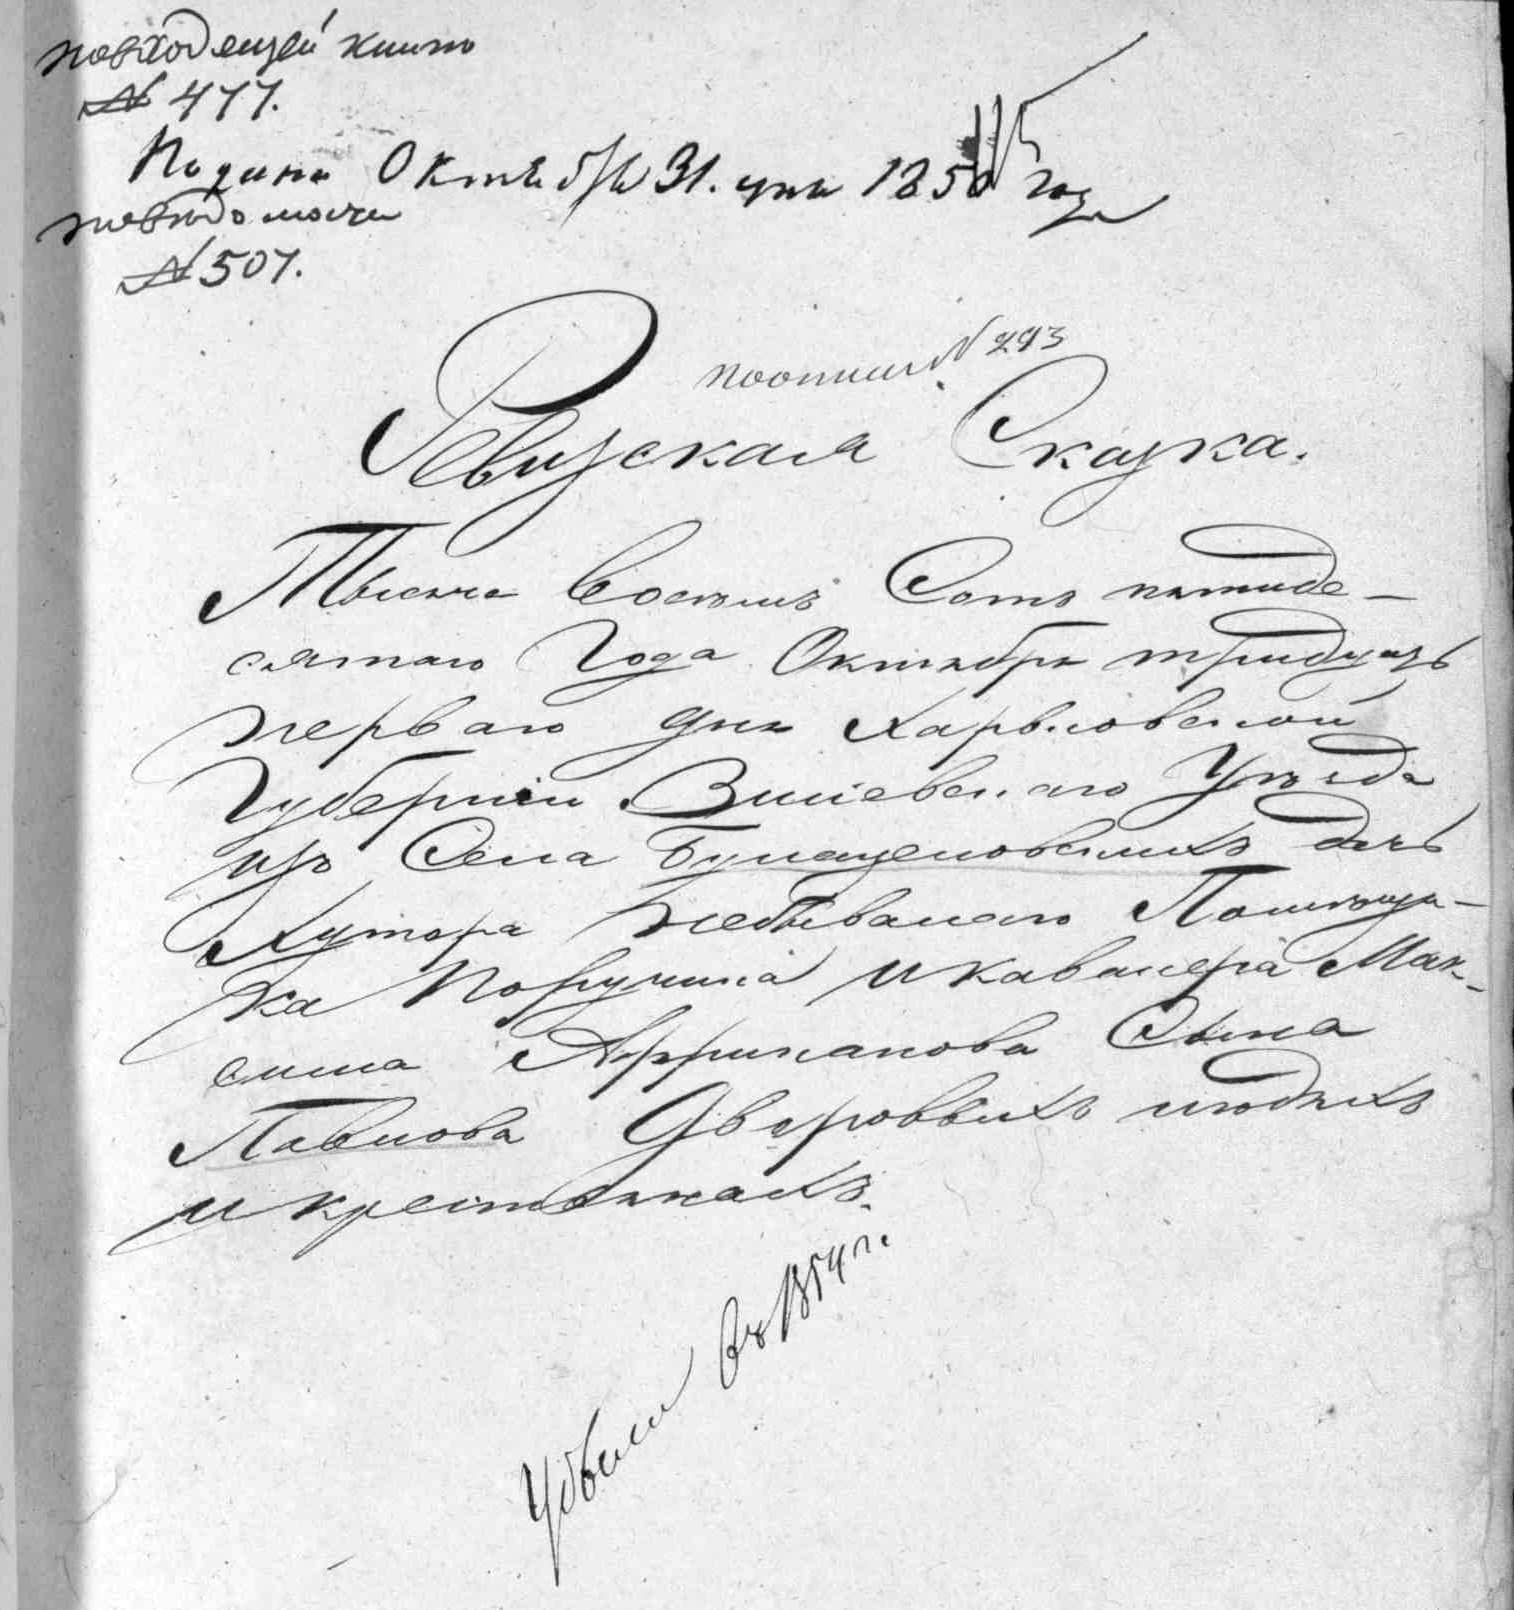 повходящей книги
№ 477.
Подана Октября 31. дня 1850 года
повѣдомости
№ 507.
поописи № 293
Ревизская Сказка.
Тысяча восемь Сотъ пятиде–
сятаго Года Октября тридцать
перваго дня Харьковской
Губерніи Зміевскаго Уѣзда
изъ Села дачь
Хутора Помѣщи–
ка Поручика и кавалера Мак–
сима Африканова Сына
Павлова О дворовыхъ людяхъ
и крестьянахъ.
Убыли въ 1854 г.